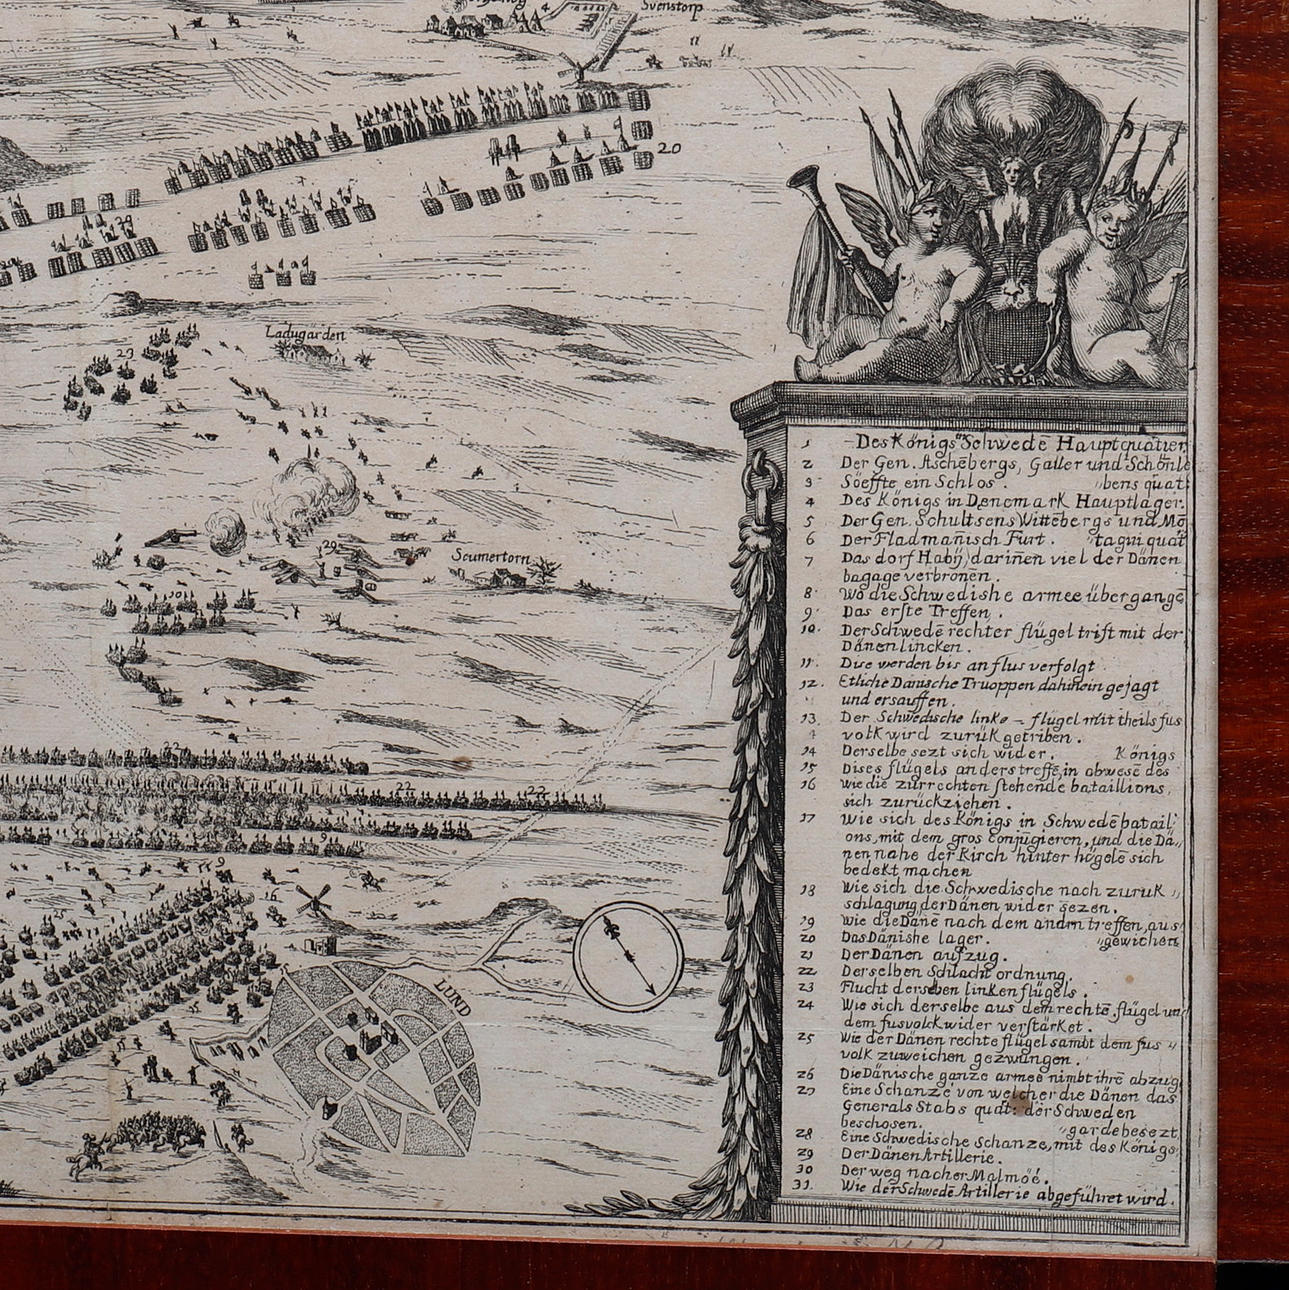 Svenstorp
20
21
23
Ladugarden
29
Scumertorn
30
22
22
9
16
LUND
1 Des Königs Schwedē Hauptquatier
2 Der Gen. Aschēbergs, Galler und Schönle
3 Söeffte ein Schlos. "bens quat:
4 Des Königs in Denemark Hauptlager.
5 Der Gen. Schultsens Wittēbergs und Mō
6 Der Fladmañisch Furt. "tagni quat
7 Das dorf Habÿ, dariñen viel der Dänen
bagage verbronēn.
8 Wo die Schwedishe armee übergangē
9 Das erste Treffen.
10. Der Schwedē rechter flügel trift mit der
Dänen lincken.
11. Dise werden bis an flus verfolgt
12. Etliche Dänische Truoppen dahinein gejagt
und ersauffen.
13 Der Schwedische linke flügel mit theils fus
volk wird zurük getriben.
14 Derselbe sezt sich wider. Königs
15 Dises flügels anders treffē, in abwesē des
16 Wie die zürrechten stehende bataillions,
sich zurückziehen.
17 Wie sich des Königs in Schwedē batail"
ons, mit dem gros conjūgieren, und die Dä,,
nen nahe der Kirch hinter högele sich
bedekt machen
18 Wie sich die Schwedische nach zuruk "
schlagung der Dänen wider sezen.
19 Wie die Däne nach dem andrn treffen, aus
20 Das Dänishe lager. "gewichen
21 Der Dänen aufzug.
22 Derselben Schlacht ordnung.
23 Flucht derselben linken flügels.
24 Wie sich derselbe aus dem rechtē flügel und
dem fusvolck wider verstärket.
25 Wie der Dänen rechte flügel sambt dem fus "
volk zuweichen gezwungen.
26 Die Dänische ganze armee nimbt ihrē abzug
27 Eine Schanze von welcher die Dänen das
Generals Stabs quat: der Schweden
beschosen. "garde besezt
28 Eine Schwedische Schanze, mit des Königs
29 Der Dänen Artillerie.
30 Der weg nacher Malmöe.
31. Wie der Schwedē Artillerie abgeführet wird.